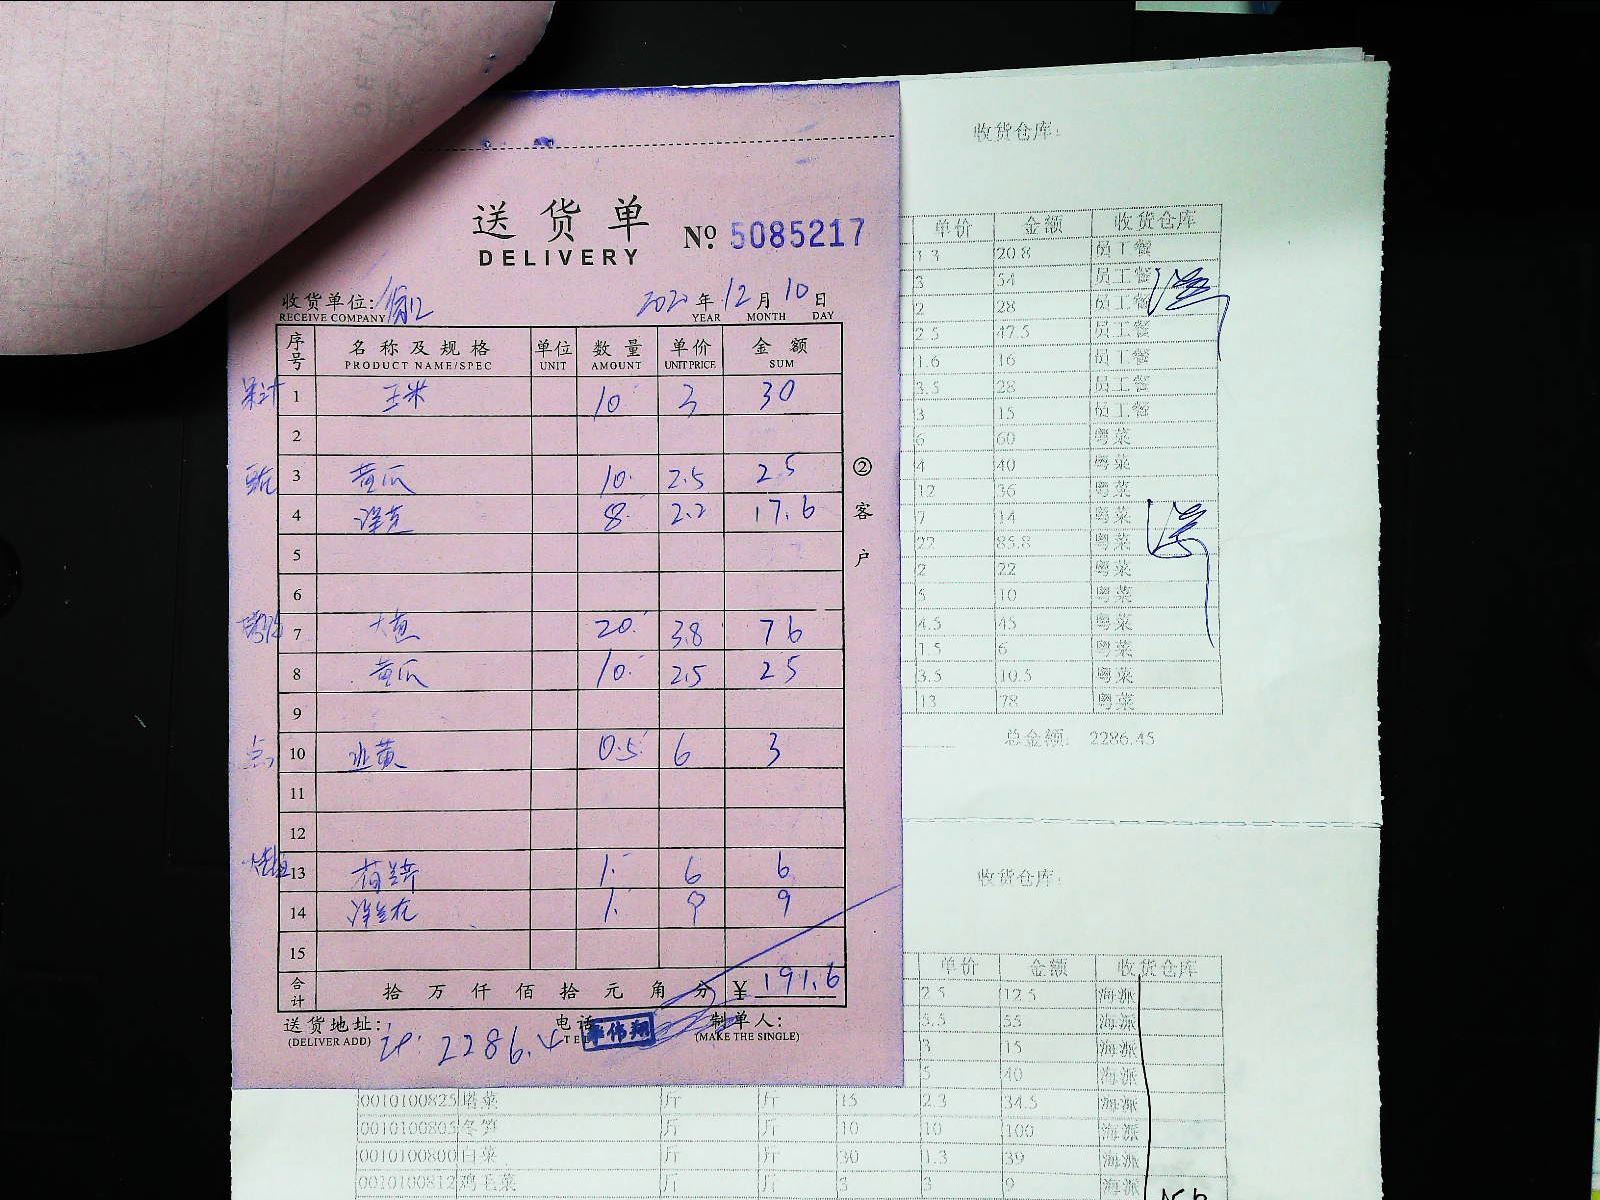 收货仓库:
送货单 № 5085217
DELIVERY
收货单位: 年 12 月 10 日
RECEIVE COMPANY YEAR MONTH DAY
序号 名称及规格 单位 数量 单价 金额
PRODUCT NAME/SPEC UNIT AMOUNT UNIT PRICE SUM
1 玉米 10 3 30
2
3 黄瓜 10 2.5 25
4 8 2.2 17.6
5
6
7 20 3.8 76
8 黄瓜 10 2.5 25
9
10 0.5 6 3
11
12
13 1 6 6
14 1 9 9
15
合计 拾 万 仟 佰 拾 元 角 分 ¥ 191.6
送货地址: 电话 制单人:
(DELIVER ADD) TEL (MAKE THE SINGLE)
2286.4
②客户
单价 金额 收货仓库
1.3 20.8 员工餐
3 54 员工餐
2 28 员工餐
2.5 47.5 员工餐
1.6 16 员工餐
3.5 28 员工餐
3 15 员工餐
6 60 粤菜
4 40 粤菜
12 36 粤菜
7 14 粤菜
22 85.8 粤菜
2 22 粤菜
5 10 粤菜
4.5 45 粤菜
1.5 6 粤菜
3.5 10.5 粤菜
13 78 粤菜
总金额: 2286.45
收货仓库:
单价 金额 收货仓库
2.5 12.5 海派
5.5 55 海派
3 15 海派
5 40 海派
0010100825 塔菜 斤 斤 15 2.3 34.5 海派
0010100803 冬笋 斤 斤 10 10 100 海派
0010100800 白菜 斤 斤 30 1.3 39 海派
0010100812 鸡毛菜 斤 斤 3 3 9 海派